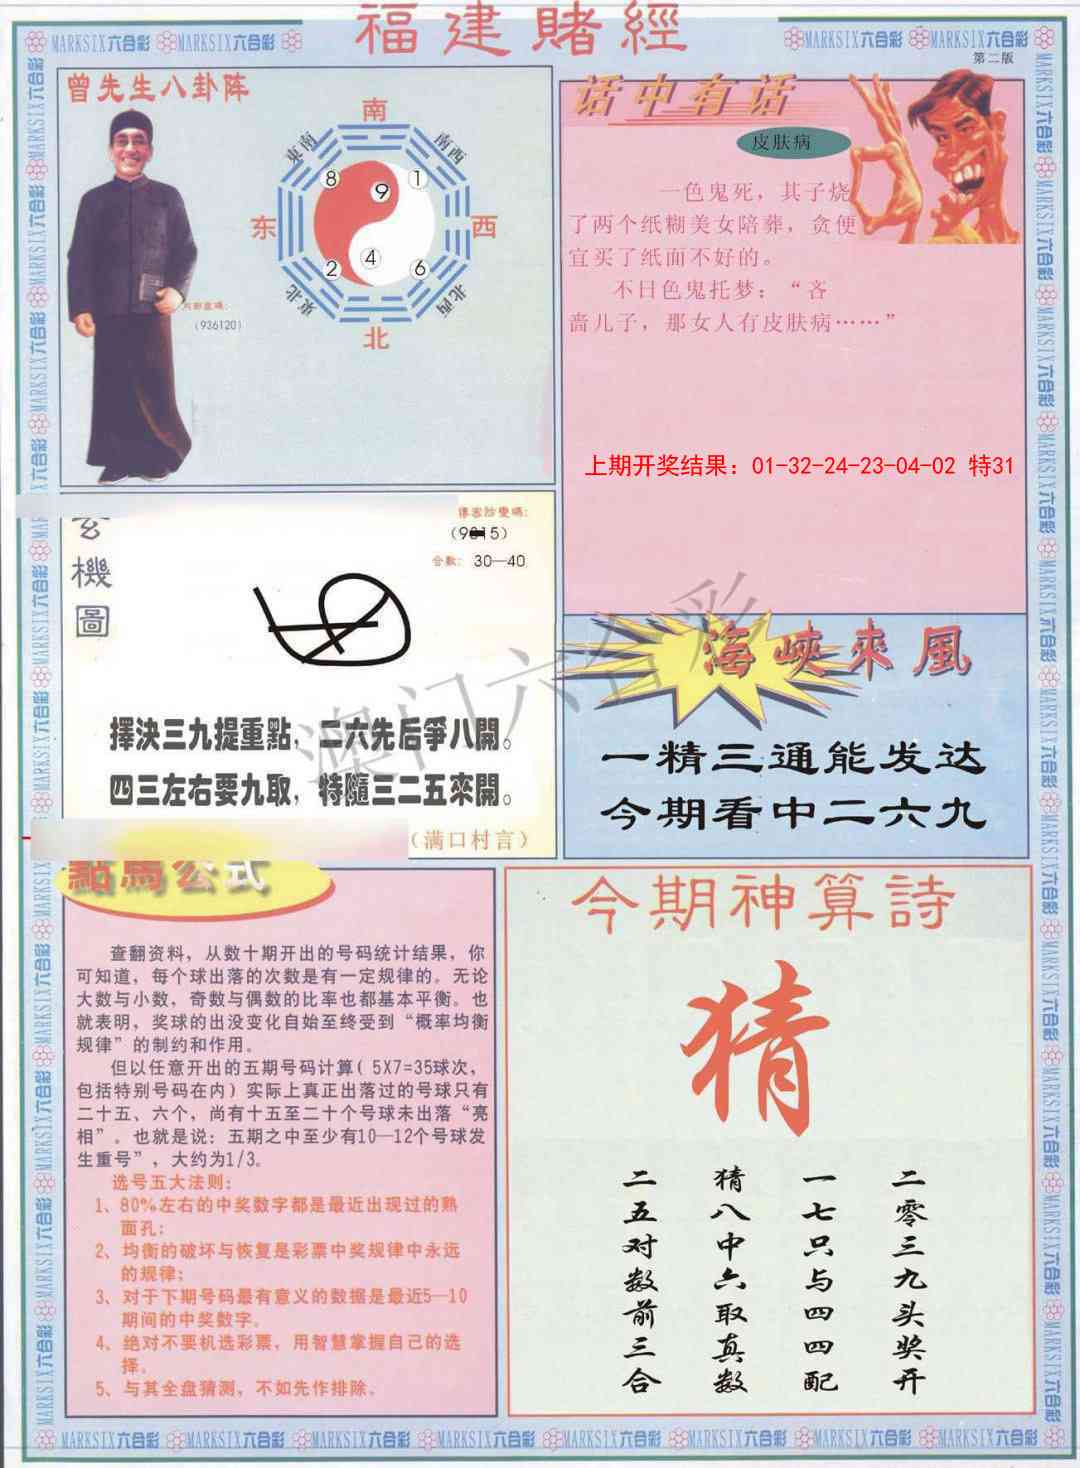 福建賭經
MARKSIX六合彩 MARKSIX六合彩
MARKSIX六合彩 MARKSIX六合彩
第二版
曾先生八卦阵
南
東南
南西
8
9
1
东
西
2
4
6
東北
北西
北
(936120)
话中有话
皮肤病
一色鬼死，其子烧
了两个纸糊美女陪葬，贪便
宜买了纸面不好的。
不日色鬼托梦：“吝
啬儿子，那女人有皮肤病……”
上期开奖结果：01-32-24-23-04-02 特31
玄機圖
合数：30—40
擇決三九提重點，二六先后爭八開。
四三左右要九取，特隨三二五來開。
（满口村言）
澳门六合彩
海峽來風
一精三通能发达
今期看中二六九
點馬公式
查翻资料，从数十期开出的号码统计结果，你
可知道，每个球出落的次数是有一定规律的。无论
大数与小数，奇数与偶数的比率也都基本平衡。也
就表明，奖球的出没变化自始至终受到“概率均衡
规律”的制约和作用。
但以任意开出的五期号码计算( 5X7=35球次，
包括特别号码在内）实际上真正出落过的号球只有
二十五、六个，尚有十五至二十个号球未出落“亮
相”。也就是说：五期之中至少有10—12个号球发
生重号”，大约为1/3。
选号五大法则：
1、80%左右的中奖数字都是最近出现过的熟
面孔；
2、均衡的破坏与恢复是彩票中奖规律中永远
的规律；
3、对于下期号码最有意义的数据是最近5—10
期间的中奖数字。
4、绝对不要机选彩票，用智慧掌握自己的选
择。
5、与其全盘猜测，不如先作排除。
今期神算詩
猜
二零三九头奖开
一七只与四四配
猜八中六取真数
二五对数前三合
MARKSIX六合彩 MARKSIX六合彩 MARKSIX六合彩 MARKSIX六合彩 MARKSIX六合彩 MARKSIX六合彩 MARKSIX六合彩 MARKSIX六合彩